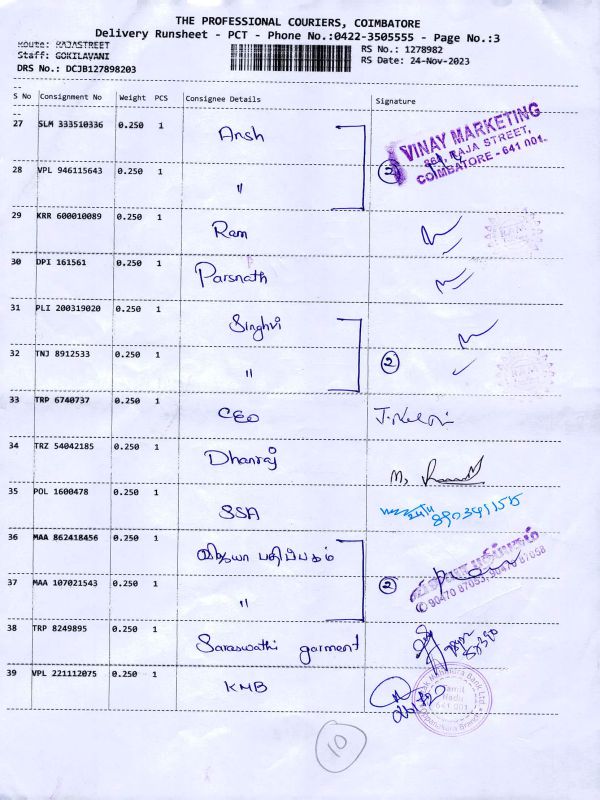 THE PROFESSIONAL COURIERS, COIMBATORE
Delivery Runsheet - PCT - Phone No.:0422-3505555 - Page No.:3
Route: RAJASTREET
RS No.: 1278982
Staff: GOKILAVANI
RS Date: 24-Nov-2023
DRS No.: DCJB127898203
S No Consignment No Weight PCS Consignee Details Signature
27 SLM 333510336 0.250 1 Ansh
VINAY MARKETING
RAJA STREET,
COIMBATORE - 641 001.
28 VPL 946115643 0.250 1 " 2
29 KRR 600010089 0.250 1 Ram
30 DPI 161561 0.250 1 Parsnath
31 PLI 200319020 0.250 1 Singhvi
32 TNJ 8912533 0.250 1 " 2
33 TRP 6740737 0.250 1 CEO
34 TRZ 54042185 0.250 1 Dhanraj
35 POL 1600478 0.250 1 SSA
36 MAA 862418456 0.250 1 விஜயா பதிப்பகம்
37 MAA 107021543 0.250 1 " 2
90470 87053, 90470 87058
38 TRP 8249895 0.250 1 Saraswathi garment
39 VPL 221112075 0.250 1 KMB
Tamil
Nadu
641 001
10